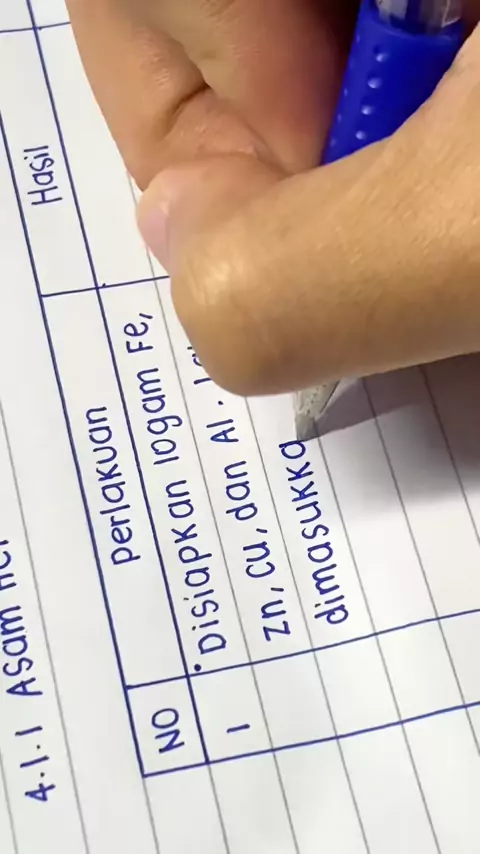 4.1.1 Asam HCl
NO perlakuan Hasil
1 • Disiapkan logam Fe,
Zn, Cu, dan Al.
dimasukka